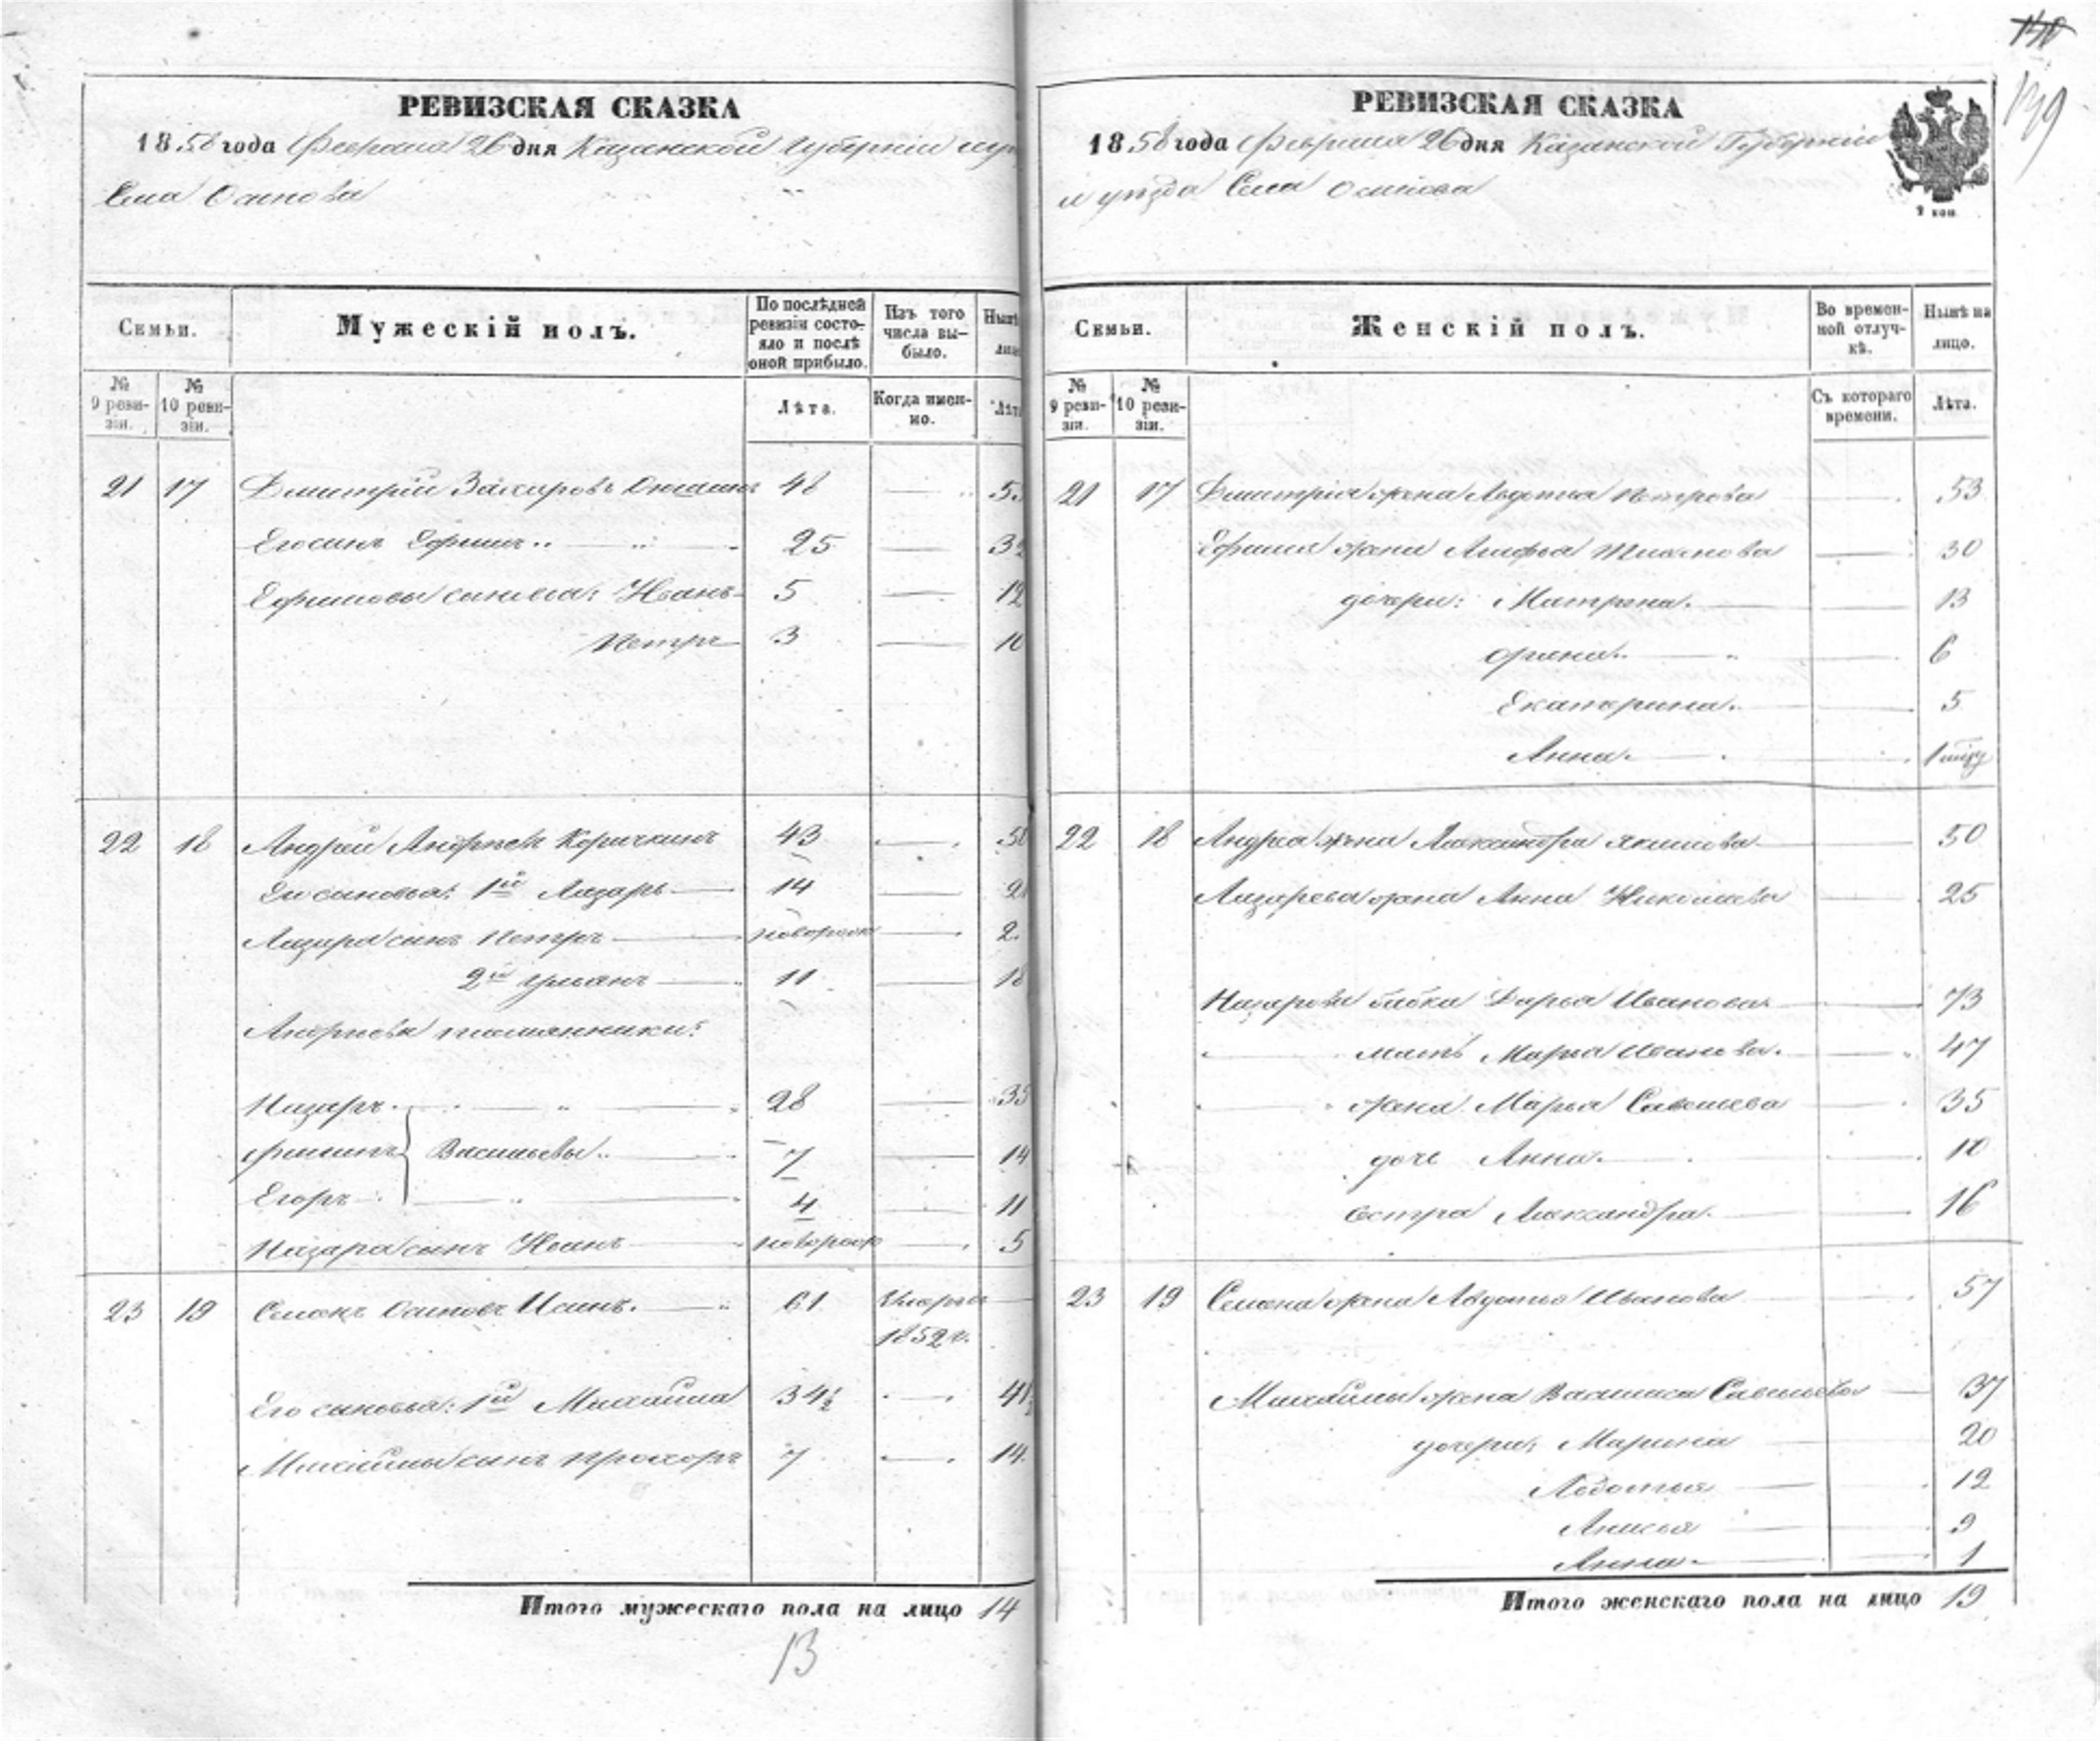 140
139
РЕВИЗСКАЯ СКАЗКА
1858 года Февраля 26 дня Казанской Губернiи и у
Села Осинова
Семьи.
Мужескiй полъ.
По послѣдней ревизiи состояло и послѣ оной прибыло.
Изъ того числа выбыло.
Нынѣ
№ 9 ревизiи.
№ 10 ревизiи.
Лѣта.
Когда именно.
Лѣта
21 17 Дмитрiй Захаровъ 48
Его сынъ Ефимъ 25
Ефимовы сыновья: Иванъ 5 12
Петръ 3 10
22 18 Андрей Андреевъ Коричкинъ 43
Его сыновья: 1й Лазарь 14
Лазаря сынъ Петръ новорож 2
2й Ульянъ 11 18
Андреева племянники:
Назаръ 28 35
Филипъ Васильевы 7 14
Егоръ 4 11
Назара сынъ Иванъ новорож 5
23 19 Семенъ Осиповъ Исинъ. 61 Умеръ
1852 г.
Его сыновья: 1й Михайла 34½ 41½
Михайлы сынъ Прохоръ 7 14
Итого мужескаго пола на лицо 14
13
РЕВИЗСКАЯ СКАЗКА
1858 года Февраля 26 дня Казанской Губернiи
и уѣзда Села Осинова
2 коп
Семьи.
Женскiй полъ.
Во временной отлучкѣ.
Нынѣ на лицо.
№ 9 ревизiи.
№ 10 ревизiи.
Съ котораго времени.
Лѣта.
21 17 Дмитрiя жена Авдотья Петрова 53
Ефима жена 30
дочери: Матрена. 13
Орина 6
Екатерина. 5
Анна. 1
22 18 Андрея жена Александра Якимова 50
Лазарева жена Анна Николаева 25
Назарова бабка Дарья Иванова 73
мать Марья Иванова. 47
жена Марья Савельева 35
дочь Анна. 10
сестра Александра. 16
23 19 Семена жена Авдотья Иванова 57
Михайлы жена Василиса Савельева 37
дочери: Марина 20
Авдотья 12
Анисья 9
Анна. 1
Итого женскаго пола на лицо 19